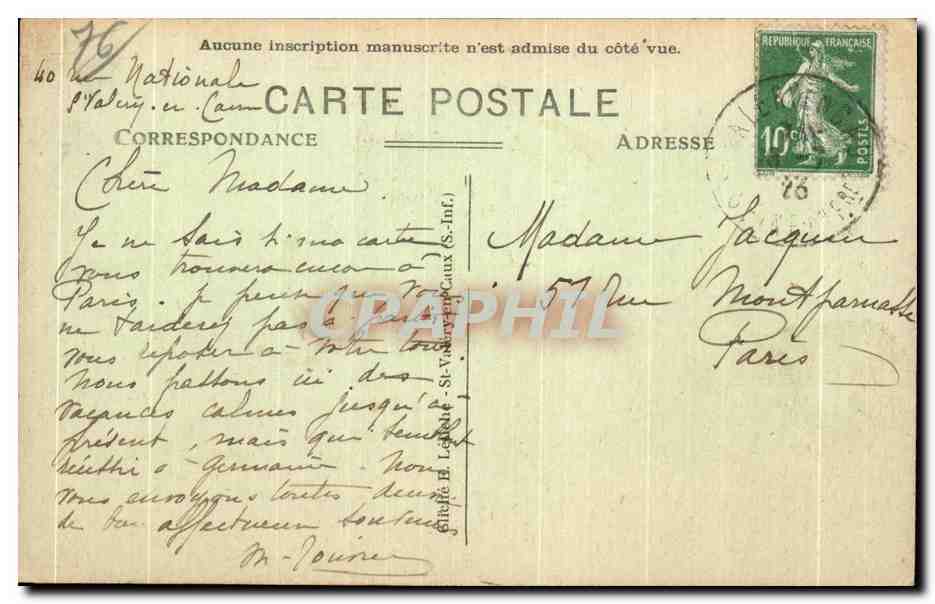 76
Aucune inscription manuscrite n'est admise du côté vue.
40 rue Nationale
St Valery-en-Caux
CARTE POSTALE
CORRESPONDANCE
ADRESSE
REPUBLIQUE FRANÇAISE
10c
POSTES
Chère Madame
Je ne sais si ma carte
vous trouvera encore à
Paris. Je pense que vous
ne tarderez pas à
vous reposer à votre tour.
Nous passons ici des
vacances calmes jusqu'à
présent, mais qui semblent
réussir à Germaine. Nous
vous envoyons toutes deux
de affectueux
Cliché E. - St-Valéry-en-Caux (S.-Inf.)
Madame Jacquier
51 Rue Montparnasse
Paris
CPAPHIL